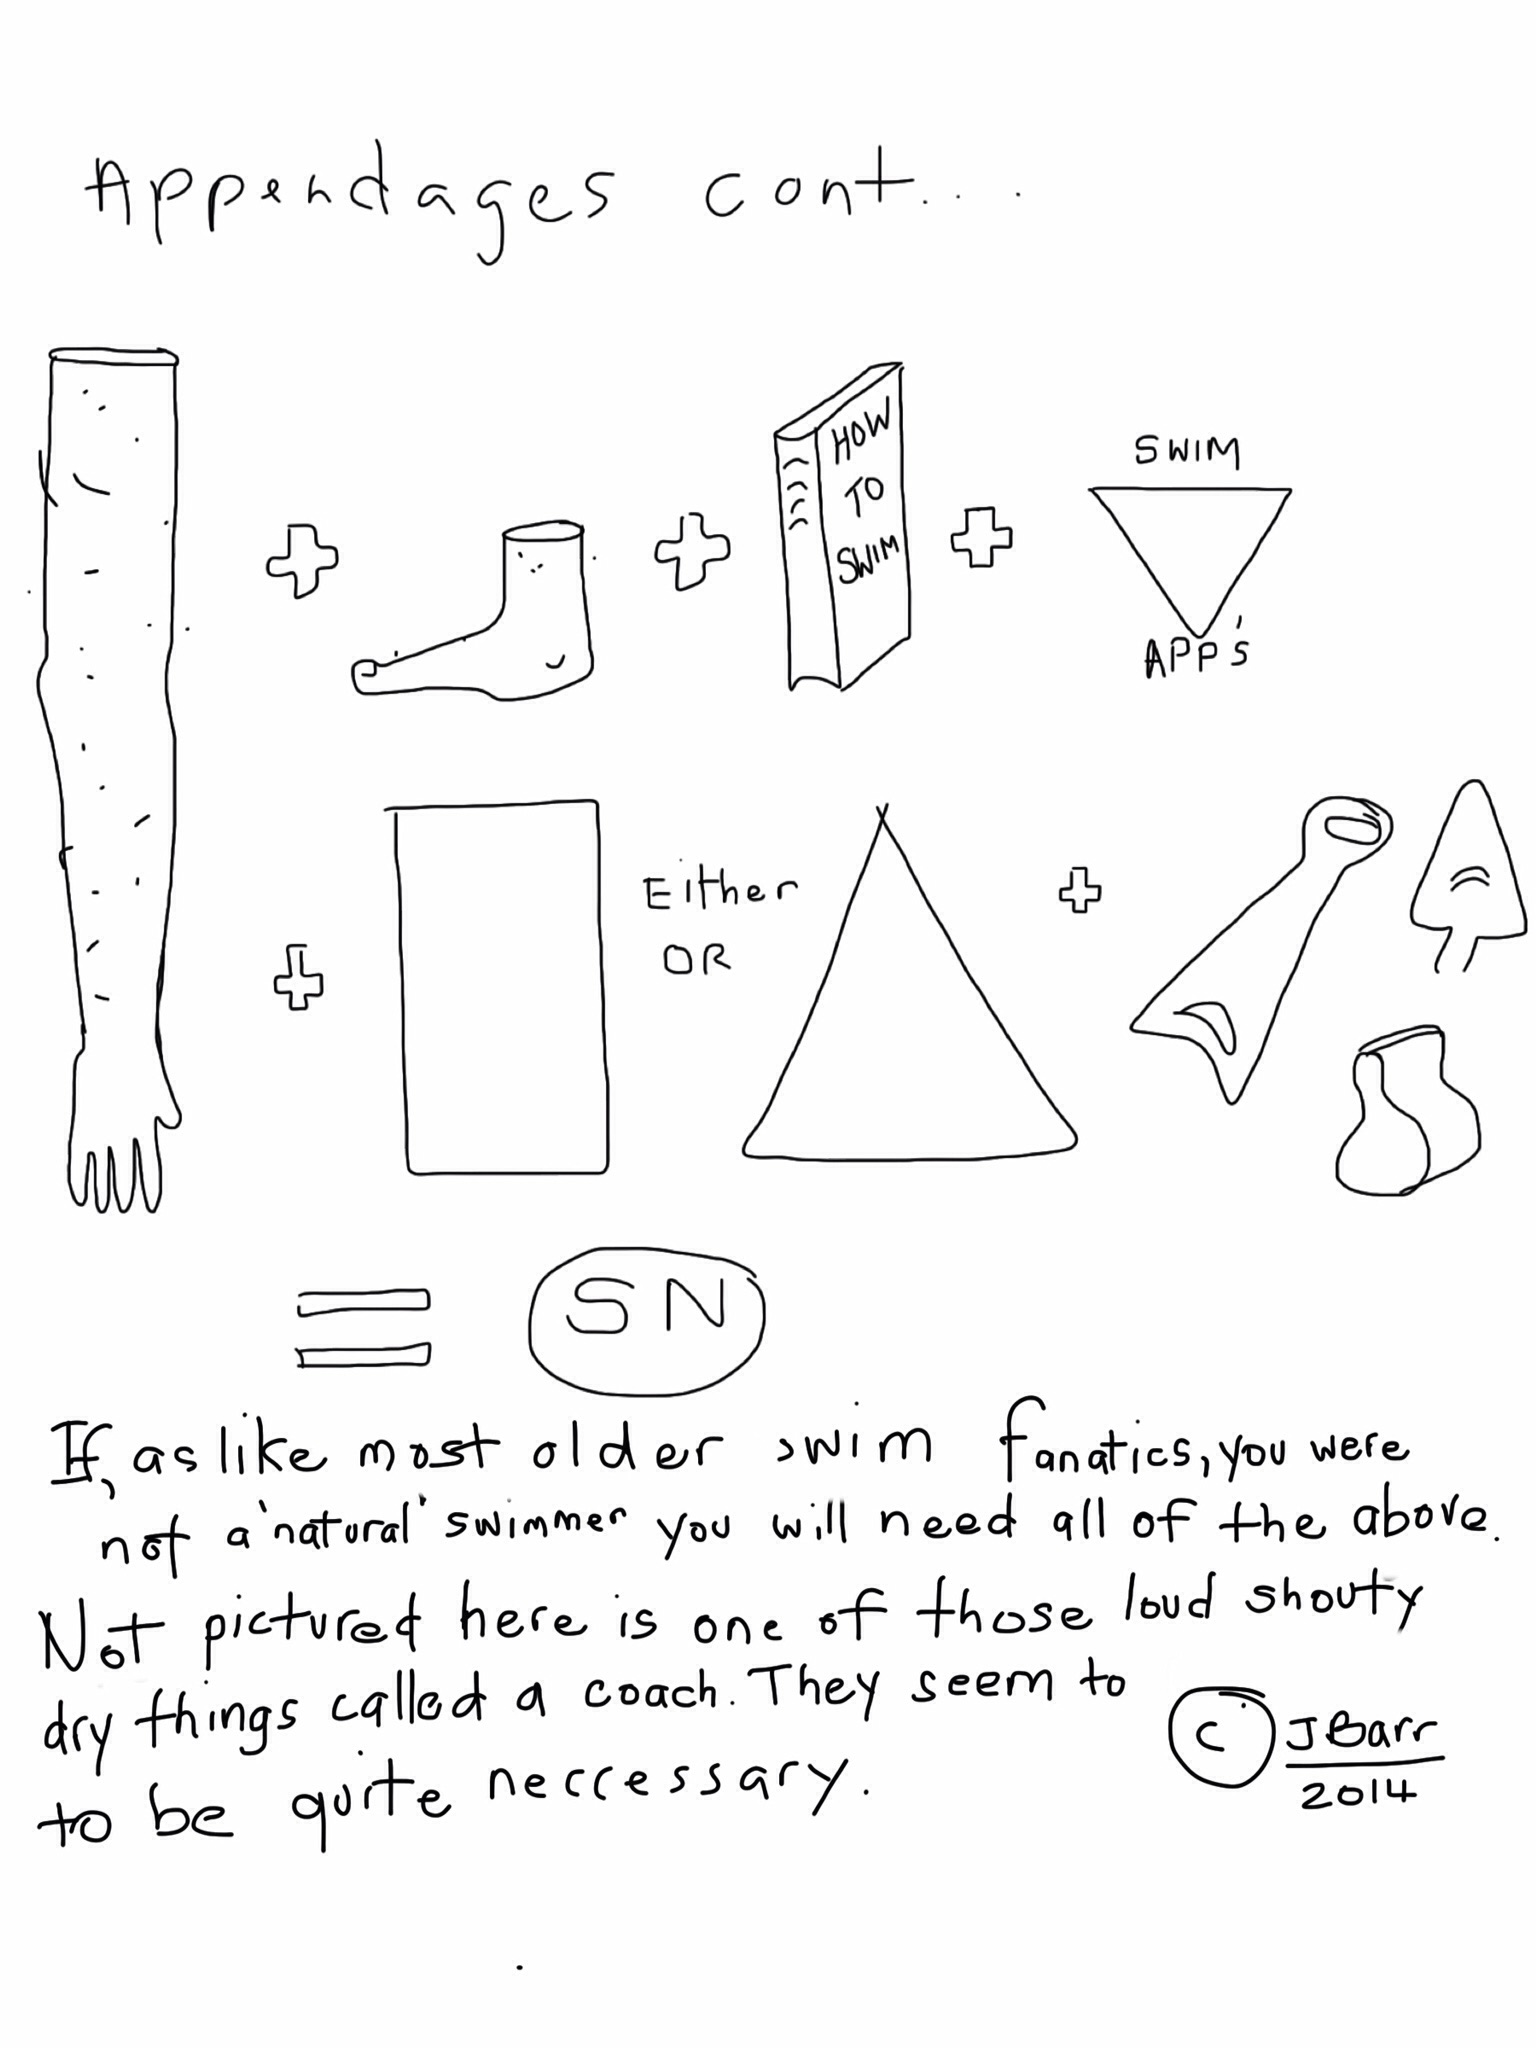 Appendages cont...
HOW
TO
SWIM
SWIM
APP'S
Either
OR
SN
If, as like most older swim fanatics, you were
not a 'natural' swimmer you will need all of the above.
Not pictured here is one of those loud shouty
dry things called a coach. They seem to
to be quite neccessary.
© JBarr
2014